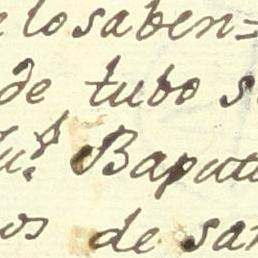 lo saben=
de tubo s
Baptt
os de san